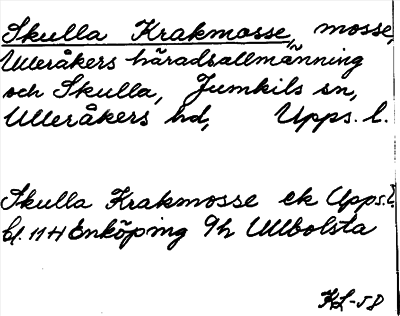 Skulla Krakmosse, mosse,
Ulleråkers häradsallmänning
och Skulla, Jumkils sn,
Ulleråkers hd, Upps. l.
Skulla Krakmosse ek Upps. l
bl. 11 H Enköping 9h Ullbolsta
KL-58